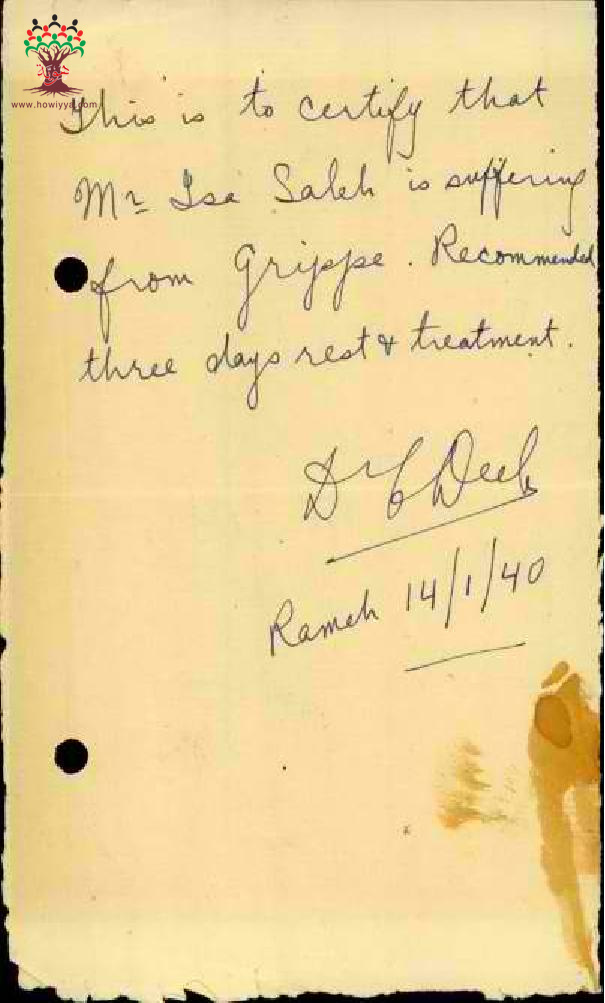 www.howiyya.com
This is to certify that
Mr Isa Saleh is suffering
from Grippe. Recommended
three days rest & treatment.
Dr
Rameh 14/1/40